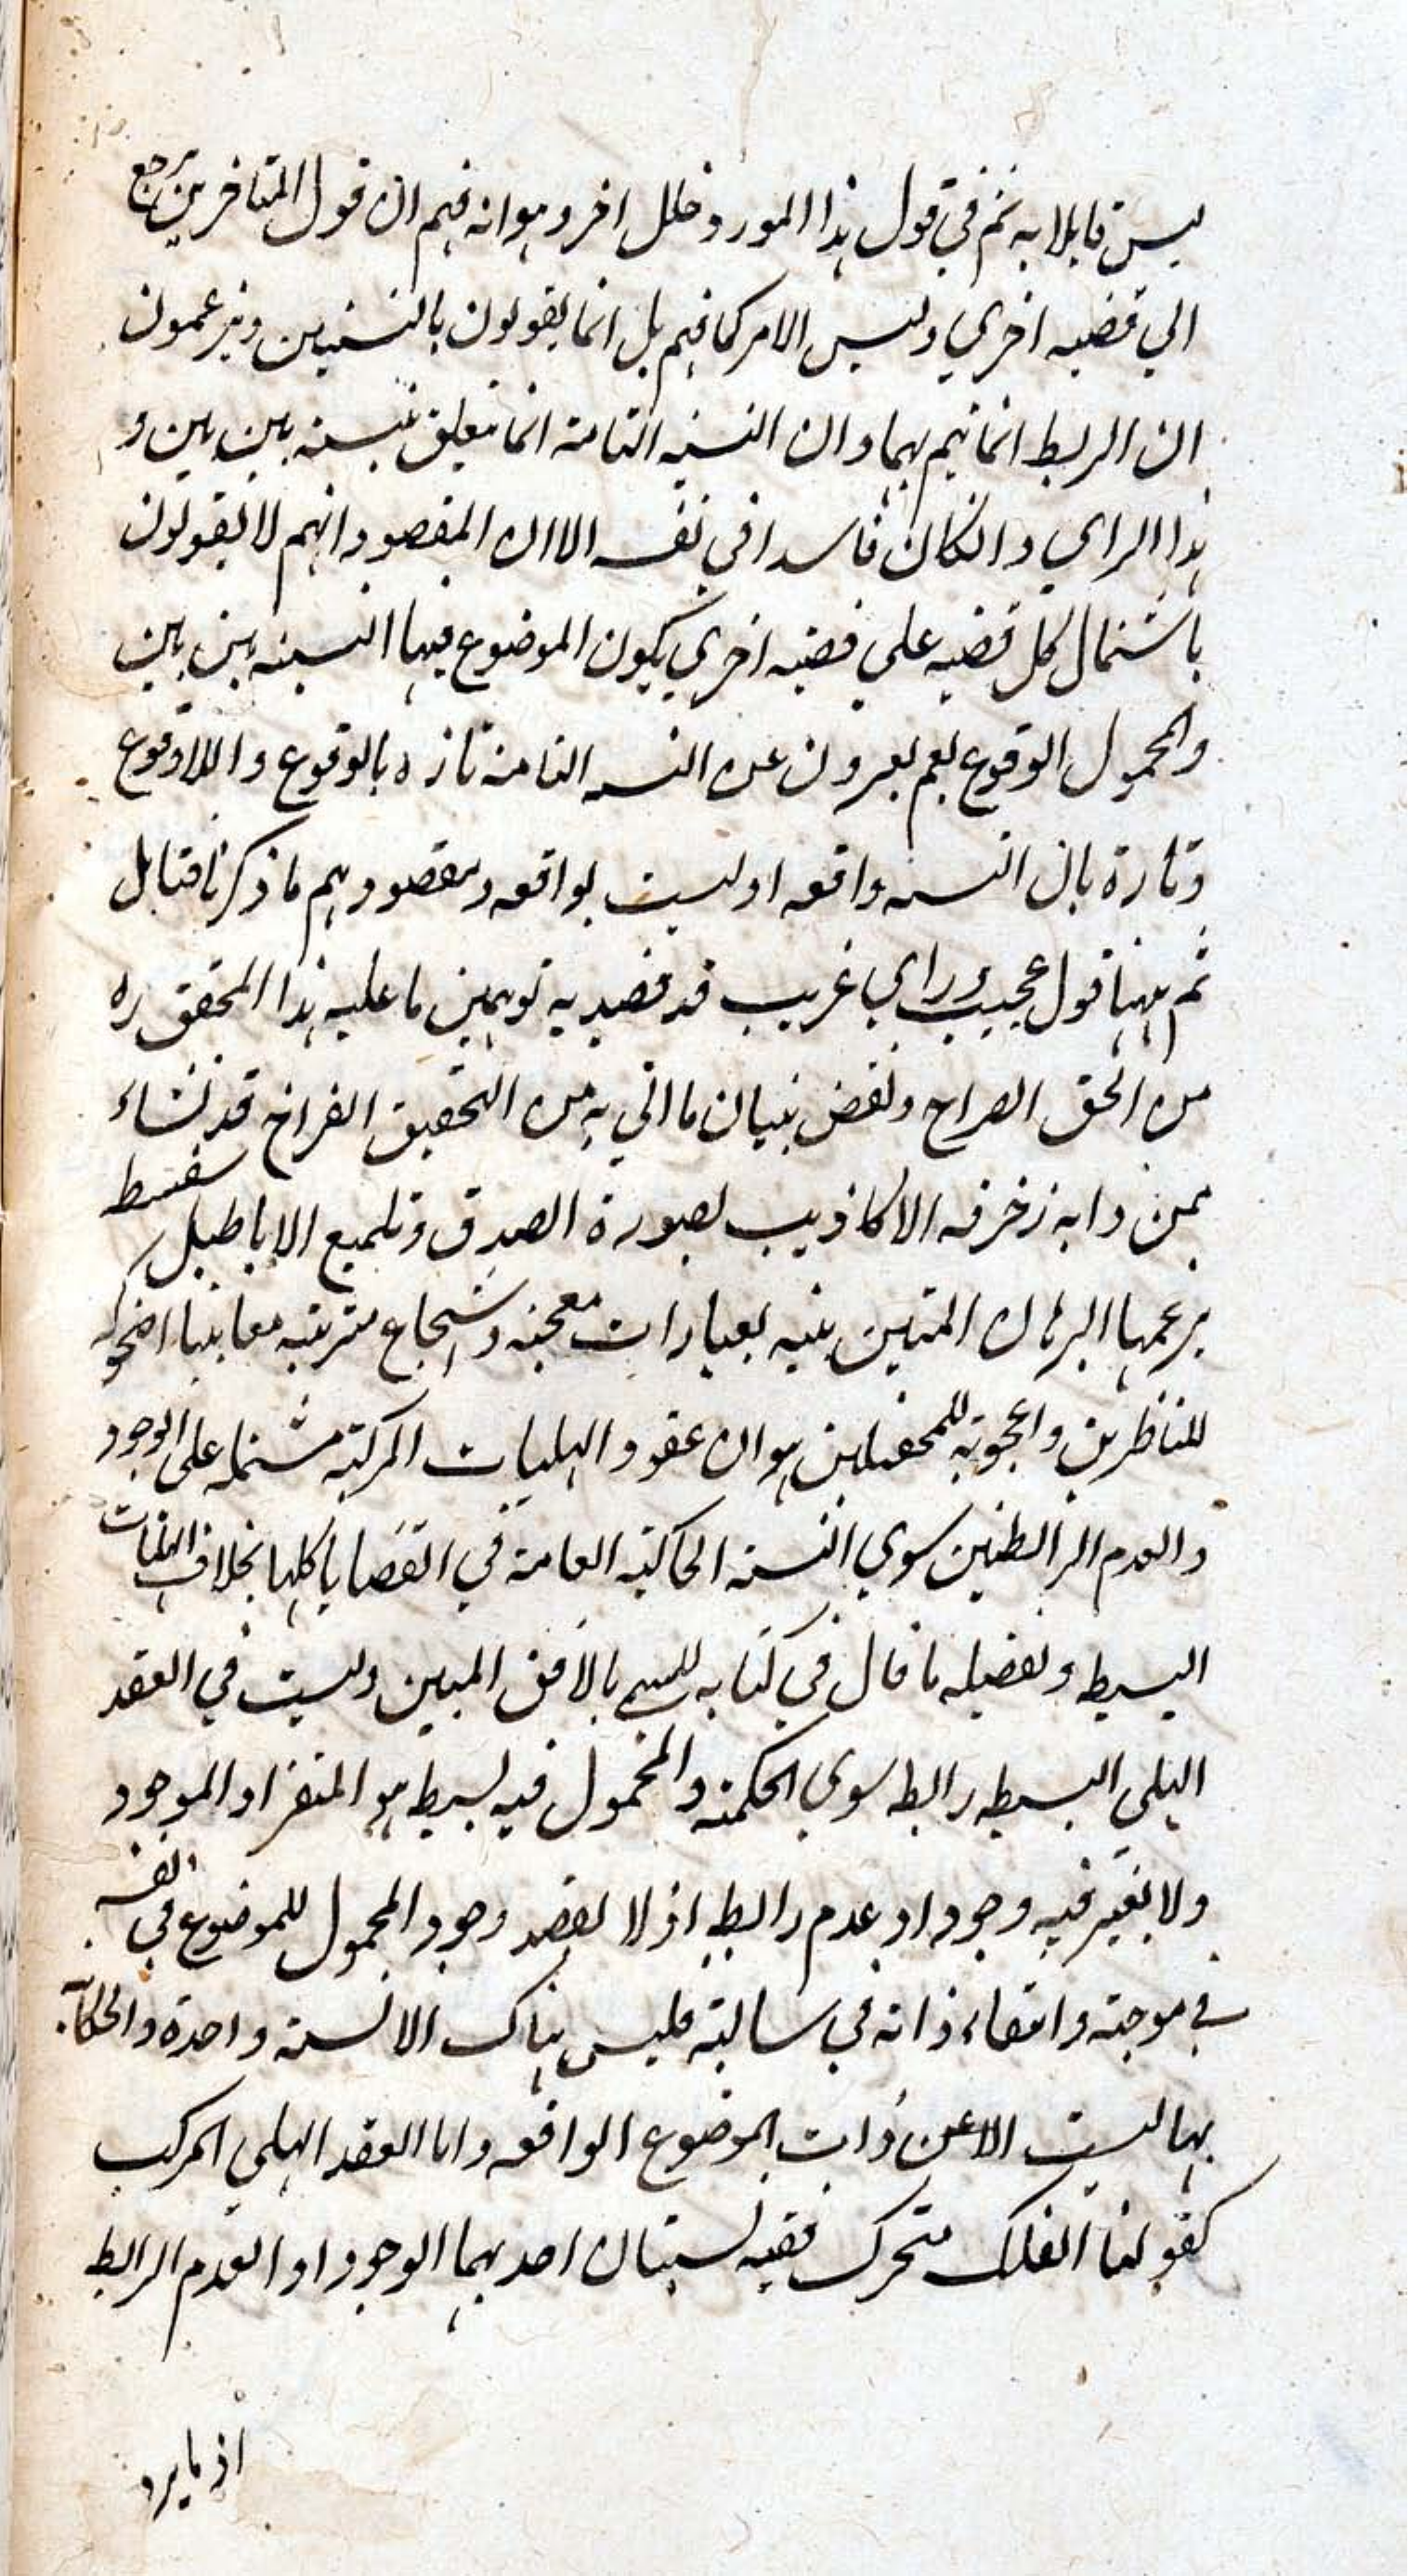 ليس قايلا به ثم في قول هذا المورد خلل اخر وهو انه فهم ان قول المتاخرين يرجع
الي قضيه اخري وليس الامر كما فهم بل انما يقولون بالنسبتين ويزعمون
ان الربط انما يتم بهما وان النسبه التامة انما تتعلق بنسبة بين بين و
هذا الراي وانكان فاسدا في نفسه الا ان المقصود انهم لا يقولون
باشتمال كل قضيه علي قضيه اخري يكون الموضوع فيها النسبة بين بين
والمحمول الوقوع نعم يعبرون عن النسبه التامة تارة بالوقوع واللاوقوع
وتارة بان النسبه واقعه او ليست بواقعه ومقصودهم ما ذكرنا فتامل
ثم ههنا قول عجيب وراي غريب قد قصد به توهين ما عليه هذا المحقق ره
من الحق الصراح ونقض بنيان ما اتي به من التحقيق القراح قد نشاء
ممن دابه زخرفه الاكاذيب بصورة الصدق وتلميع الاباطيل سفسط
بزعمها البرهان المتين بنيه بعبارات معجبه واسجاع مترتبه معانيها اضحوكه
للناظرين واعجوبه للمحصلين هو ان عقود الهليات المركبة مشتمله علي الوجود
والعدم الرابطين سوي النسبة الحاكية العامة في القضايا كلها بخلاف الهليات
البسيطه وتفصيله ما قال في كتابه المسمي بالافق المبين وليست في العقد
الهلي البسيط رابطه سوي الحكمية والمحمول فيه بسيط هو المتقرر او الموجود
ولا يعتبر فيه وجود او عدم رابط اذ لا يقصد وجود المحمول للموضوع في نفسه
في موجبة وانتفاء ذاته في سالبة فليس هناك الا نسبة واحدة والحكاية
بها ليست الا عن ذات الموضوع الواقعه واما العقد الهلي المركب
كقولنا الفلك متحرك ففيه نسبتان احدهما الوجود او العدم الرابط
اذ ما يرد